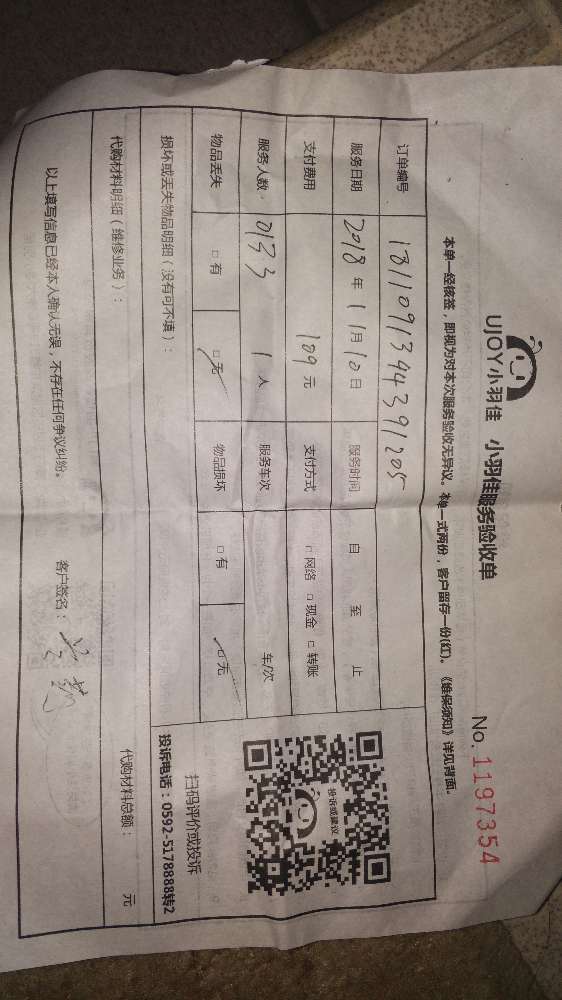 UJOY小羽佳 小羽佳服务验收单 No. 1197354
本单一经核签，即视为对本次服务验收无异议。本单一式两份，客户留存一份(红)。《维保须知》详见背面。
订单编号 18110913944391205
服务日期 2018年 11月10日 服务时间 自 至 止
支付费用 109元 支付方式 □网络 □现金 □转账
服务人数 0133 1人 服务车次 车/次
物品丢失 □有 □无 物品损坏 □有 □无
投诉或建议
扫码评价或投诉
投诉电话：0592-5178888转2
损坏或丢失物品明细（没有可不填）：
代购材料明细（维修业务）： 代购材料总额： 元
以上填写信息已经本人确认无误，不存在任何争议纠纷。
客户签名：